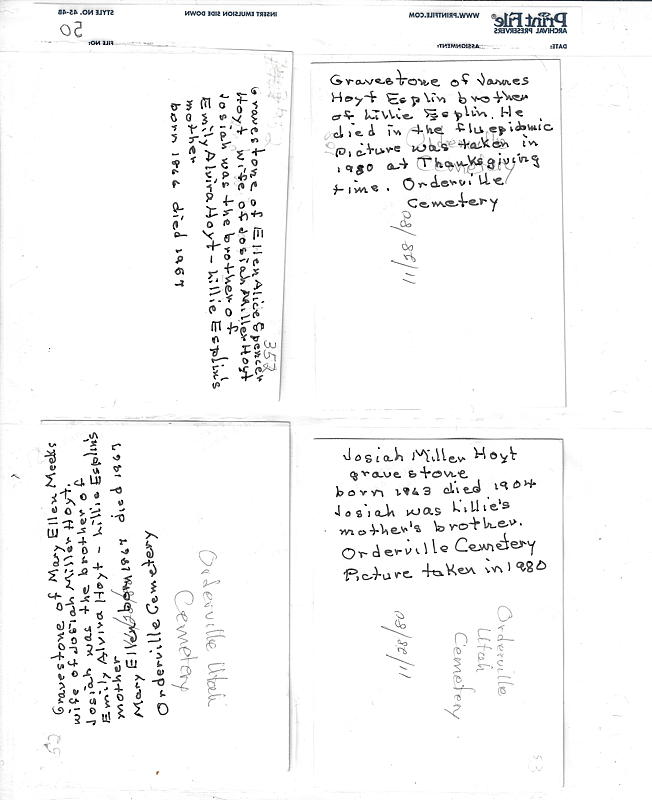 STYLE NO. 45-4B
INSERT EMULSION SIDE DOWN
WWW.PRINTFILE.COM
Print File
ARCHIVAL PRESERVERS
50
FILE NO:
ASSIGNMENT:
DATE:
Gravestone of Ellen Alice Spencer
Hoyt wife of Josiah Miller Hoyt
Josiah was the brother of
Emily Alvira Hoyt - Lillie Esplin's
mother
born 1866 died 1967
352
Gravestone of James
Hoyt Esplin brother
of Lillie Esplin. He
died in the flu epidemic
Picture was taken in
1980 at Thanksgiving
time. Orderville
Cemetery
11/28/80
Gravestone of Mary Ellen Meeks
wife of Josiah Miller Hoyt.
Josiah was the brother of
Emily Alvira Hoyt - Lillie Esplin's
mother
Mary Ellen born died 1967
Orderville Cemetery
Orderville Utah
Cemetery
Josiah Miller Hoyt
gravestone
born 1863 died 1904
Josiah was Lillie's
mother's brother.
Orderville Cemetery
Picture taken in 1980
11/28/80
Orderville
Utah
Cemetery
53